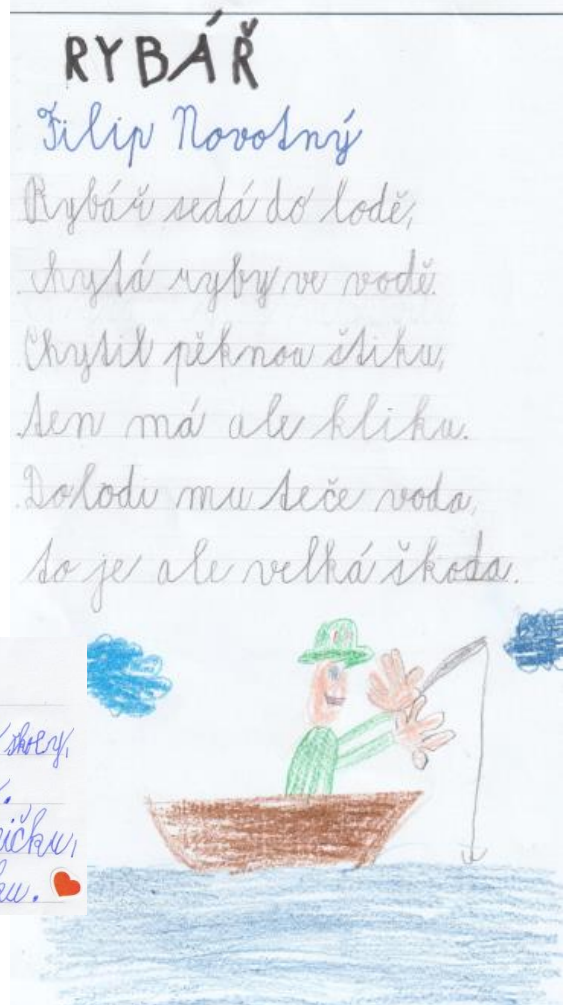 RYBÁŘ
Filip Novotný
Rybář sedá do lodě,
chytá ryby ve vodě.
Chytil pěknou štiku,
ten má ale kliku.
Do lodi mu teče voda,
to je ale velká škoda.
školy,